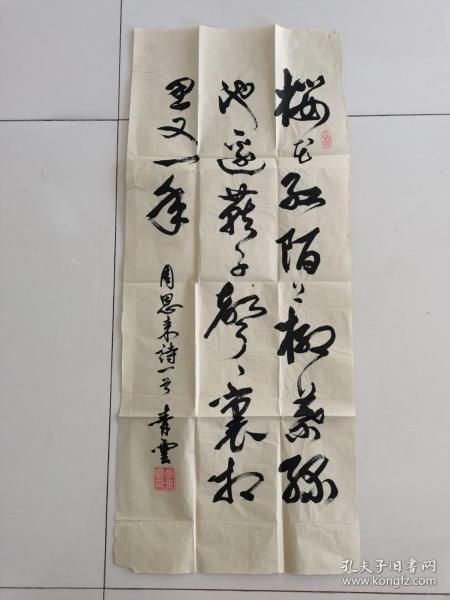 樱花红陌上柳叶绿
池边燕子声声里相
思又一年
周恩来诗一首 青云
孔夫子旧书网
www.kongfz.com